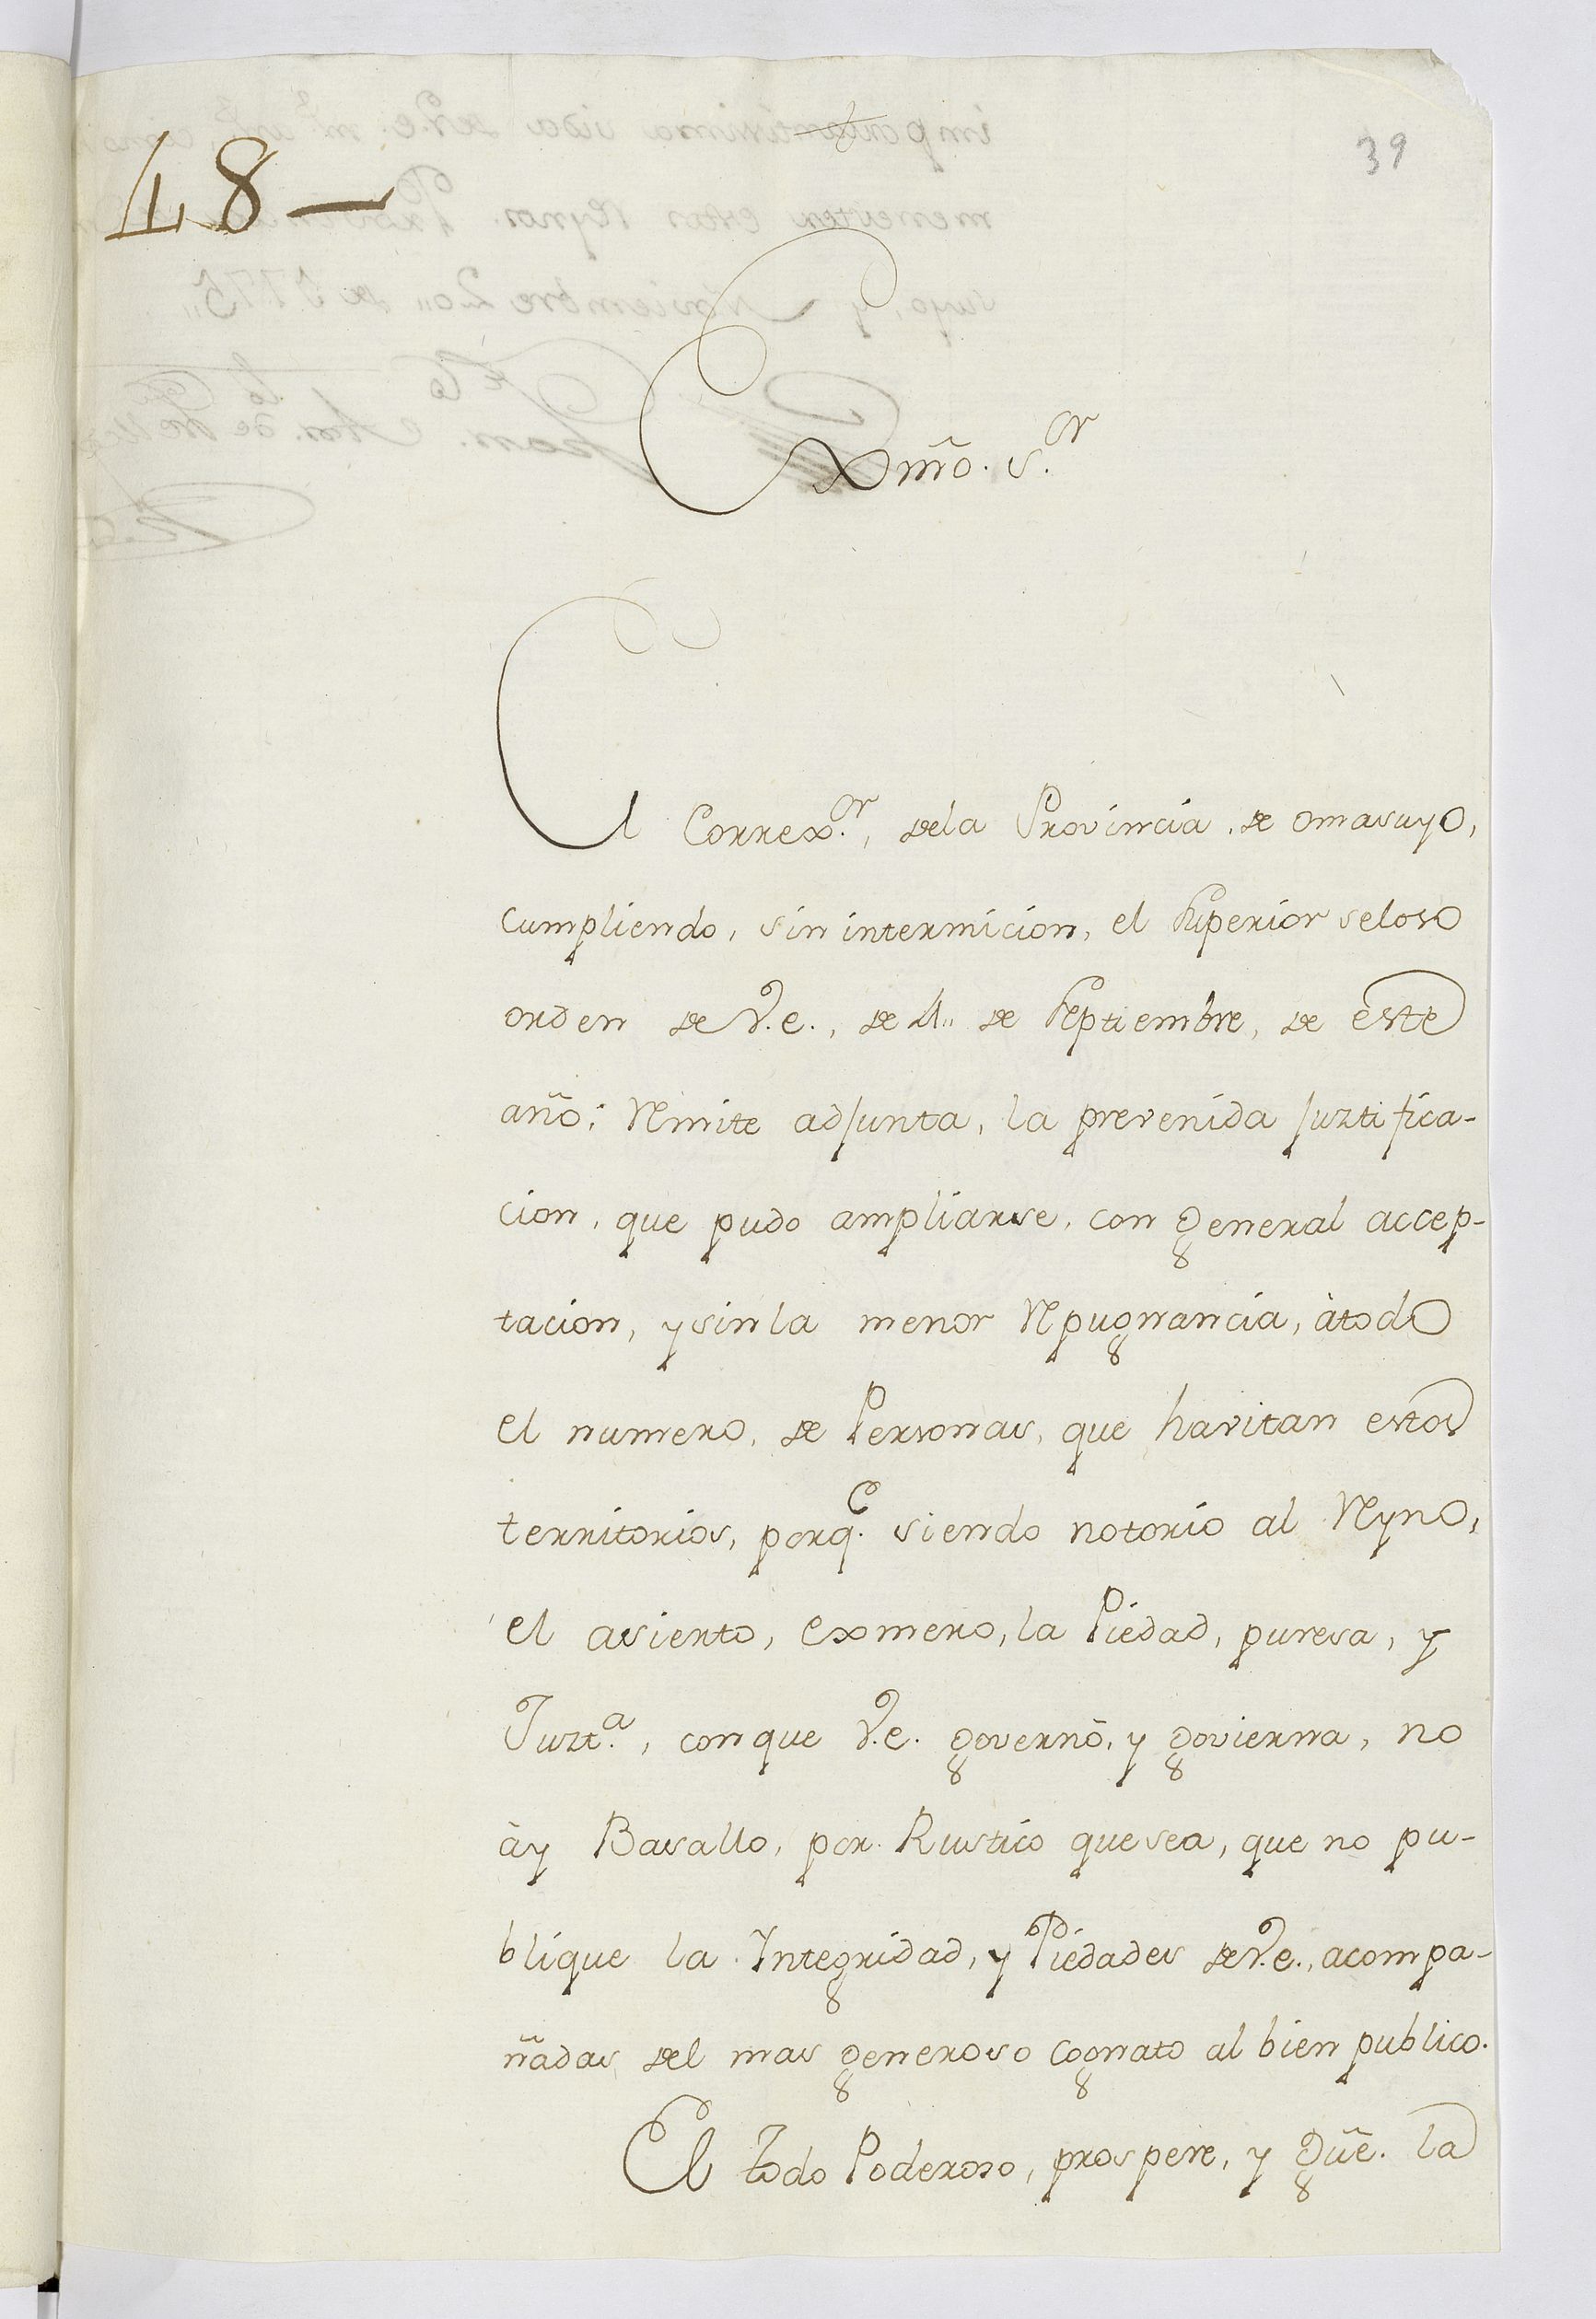 48—
39
Exmõ. S.or
El Correx.or, dela Provincia, de omasuyo,
cumpliendo, sin intermicion, el Superior seloso
orden de V.e., de 4,, de Septiembre, de este
año; Remite adjunta, la prevenida Juztifica-
cion, que pudo ampliarse, con general accep-
tacion, y sin la menor Repugnancia, à todo
el numero, de Personas, que havitan estos
territorios, porq.e siendo notorio al Reyno,
el asierto, exmero, la Piedad, puresa, y
Juzt.a, con que V.e. governò, y govierna, no
ày Basallo, por Rustico que sea, que no pu-
blique la Integridad, y Piedades de V.e., acompa-
ñadas del mas generoso cognato al bien publico.
El todo Poderoso, prospere, y güe. la